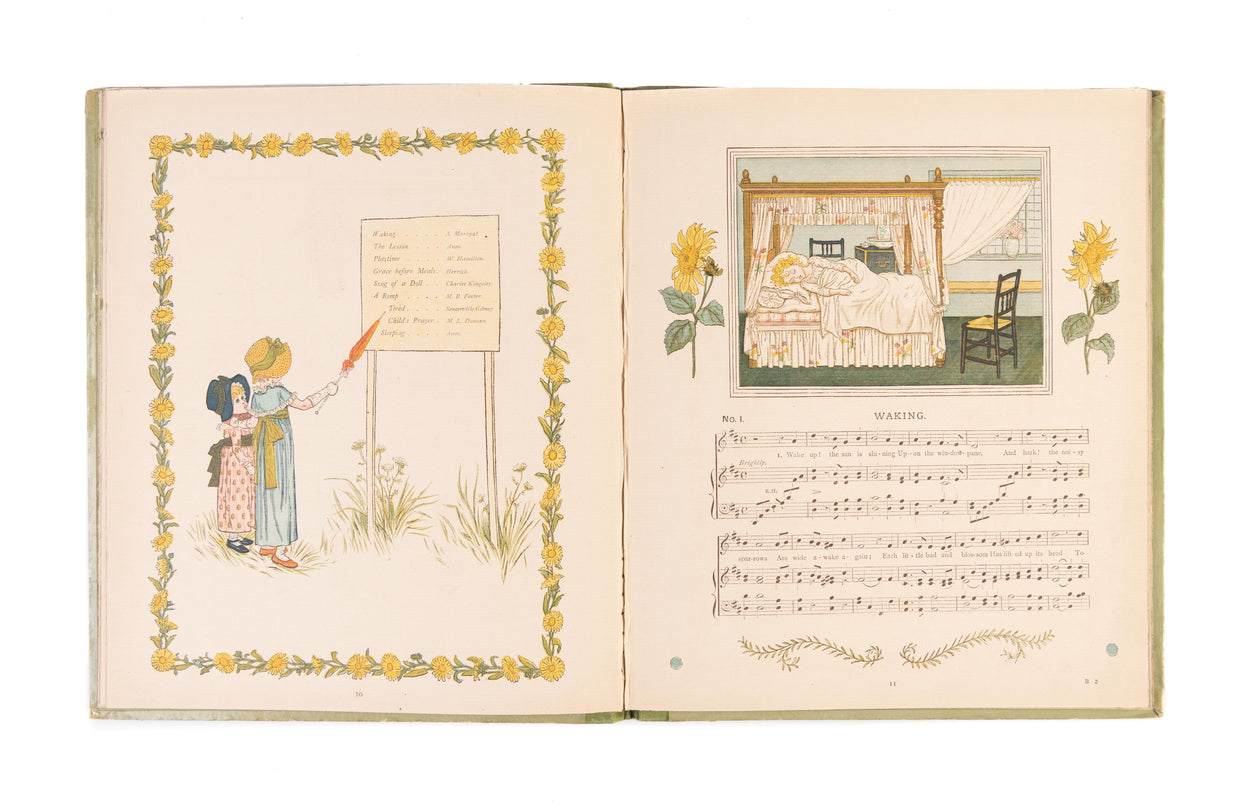 Waking . . . . . A. Matéaux.
The Lesson . . . . Anon.
Playtime . . . . W. Hamilton.
Grace before Meals. Herrick.
Song of a Doll . . . Charles Kingsley.
A Romp . . . . M. B. Foster.
Tired . . . . Somerville Gibney
Child's Prayer . M. L. Duncan.
Sleeping . . . . . Anon.
10
No. 1.
WAKING.
1. Wake up! the sun is shi-ning Up-on the win-dow-pane, And hark! the noi-sy
Brightly.
R.H.
spar-rows Are wide a-wake a-gain; Each lit-tle bud and blos-som Has lift-ed up its head To
11
B 2